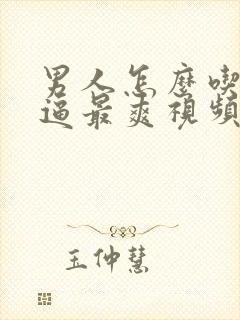 男人怎麼喫
逼最爽視頻
王仲慧